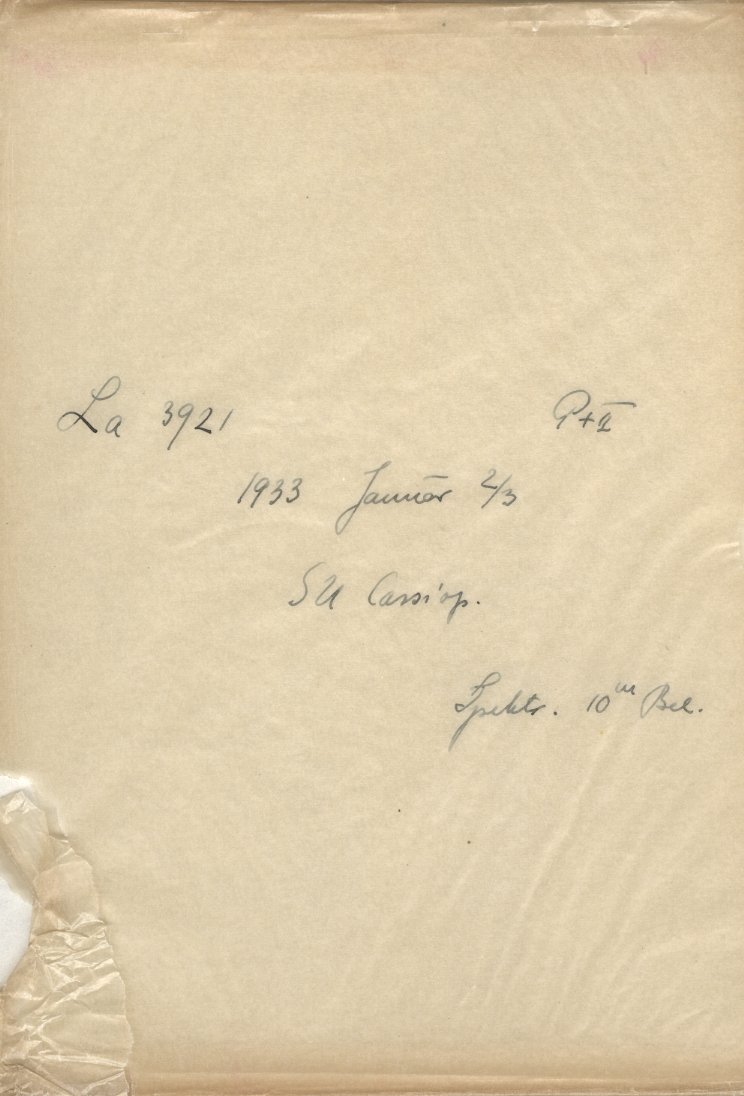 La 3921 P+2
1933 Januar 2/3
SU Cassiop.
Spektr. 10m Bel.